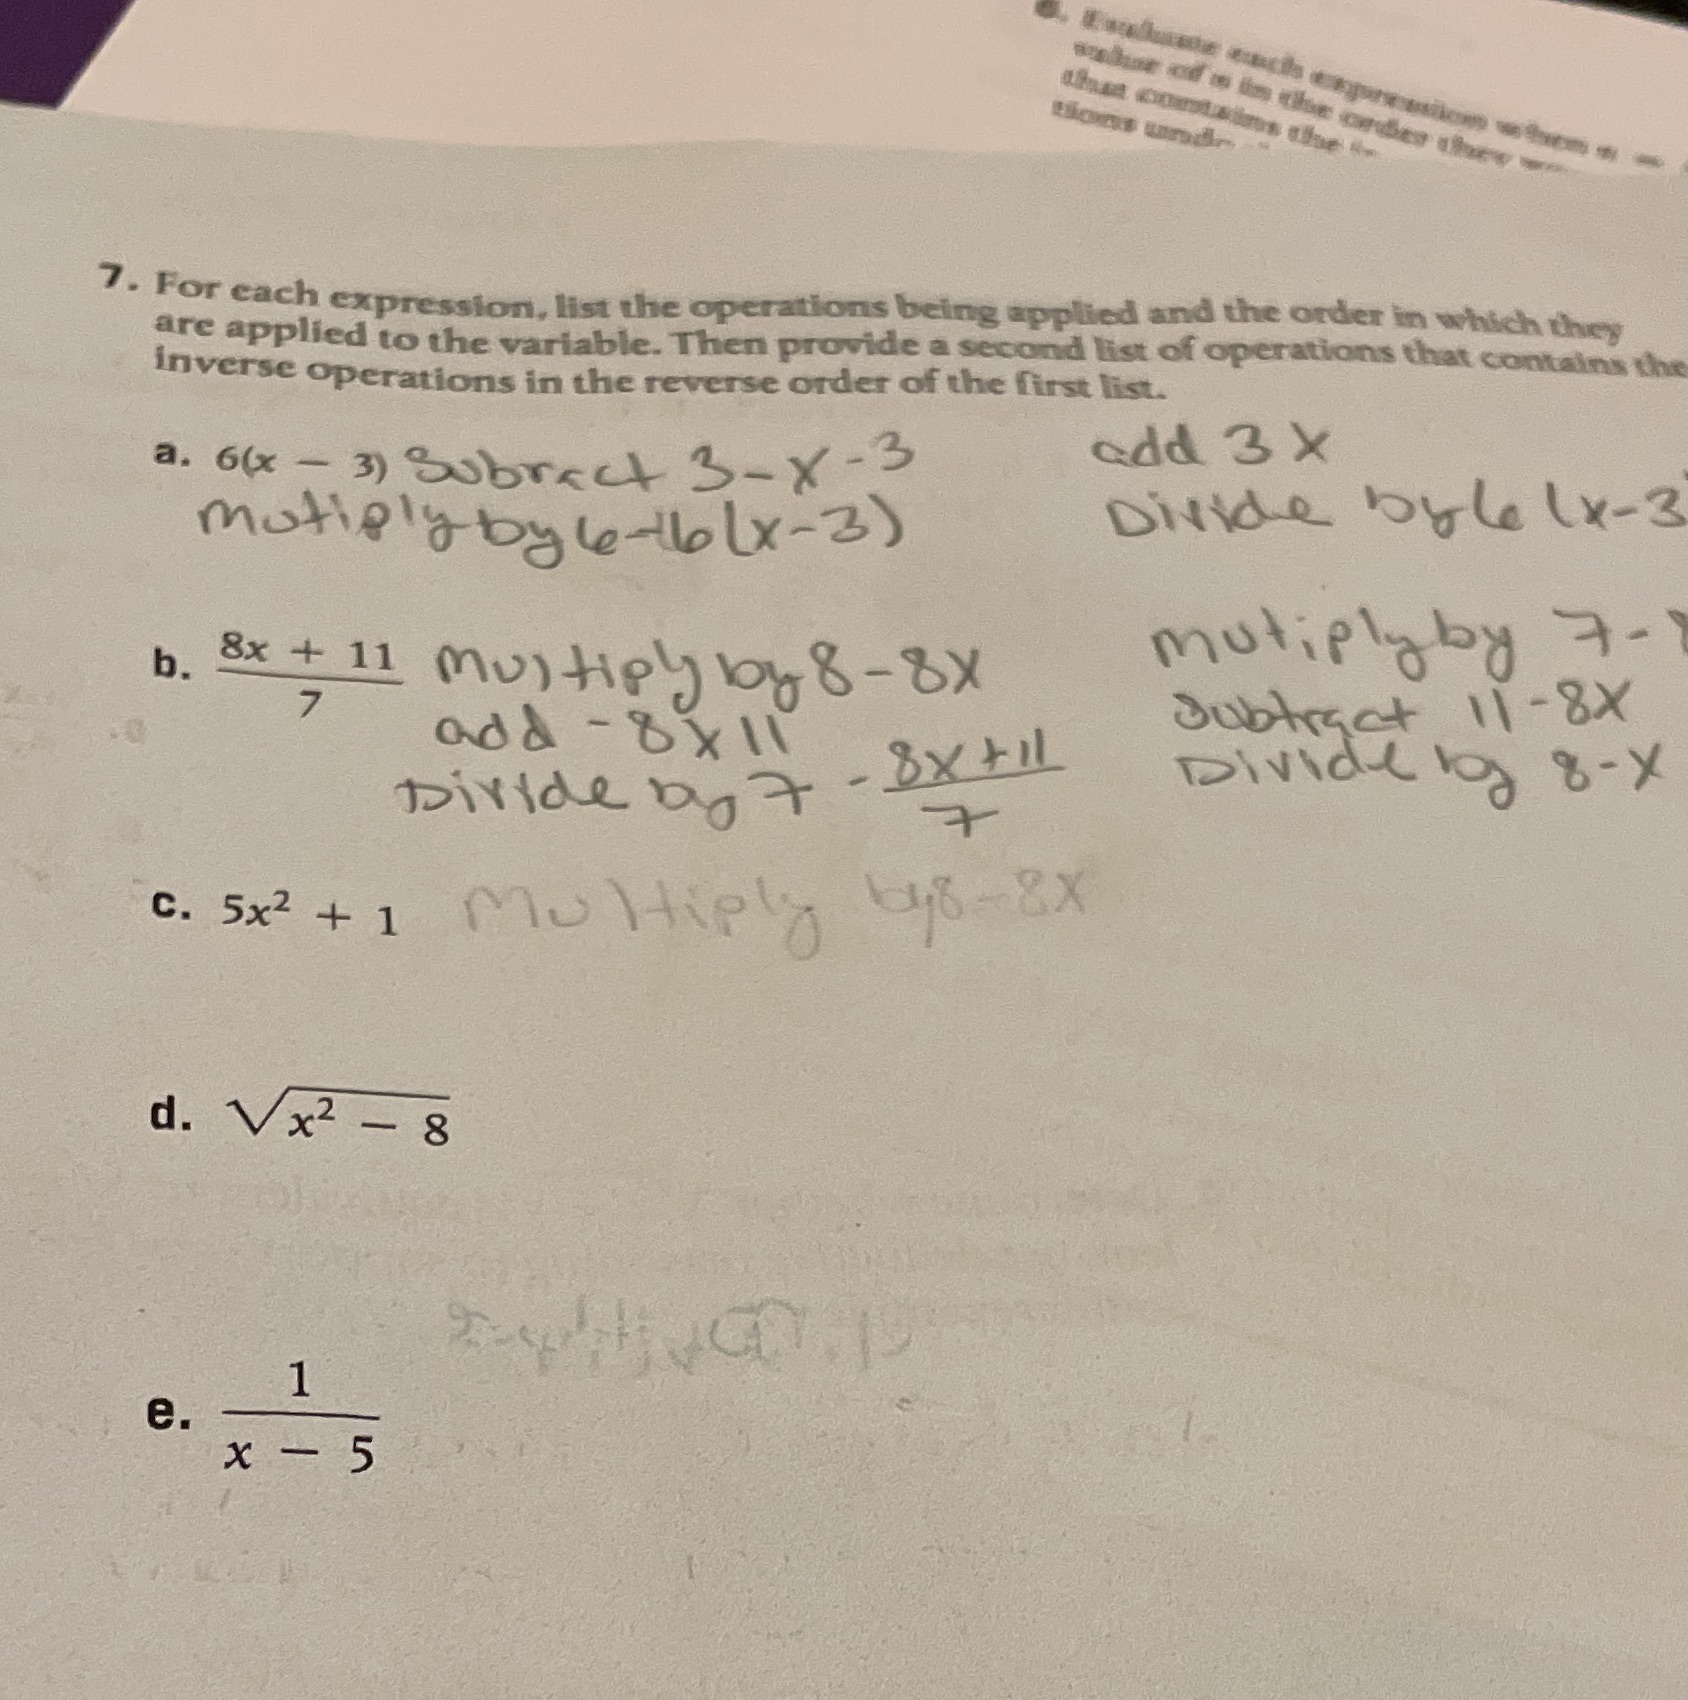 6. Evaluate each expression when x =
value of x in the order they
that contains the
tions
7. For each expression, list the operations being applied and the order in which they
are applied to the variable. Then provide a second list of operations that contains the
inverse operations in the reverse order of the first list.
a. 6(x − 3) Subract 3 - x - 3 add 3 x
Motiply by 6 - 16(x - 3) Divide by 6 (x - 3
b. \frac{8x + 11}{7} Multiply by 8 - 8x mutiply by 7 -
add - 8x 11 Subtract 11 - 8x
Divide by 7 - \frac{8x + 11}{7} Divide by 8 - x
c. 5x² + 1 Multiply by 8 - 8x
d. √(x² − 8)
e. \frac{1}{x − 5}